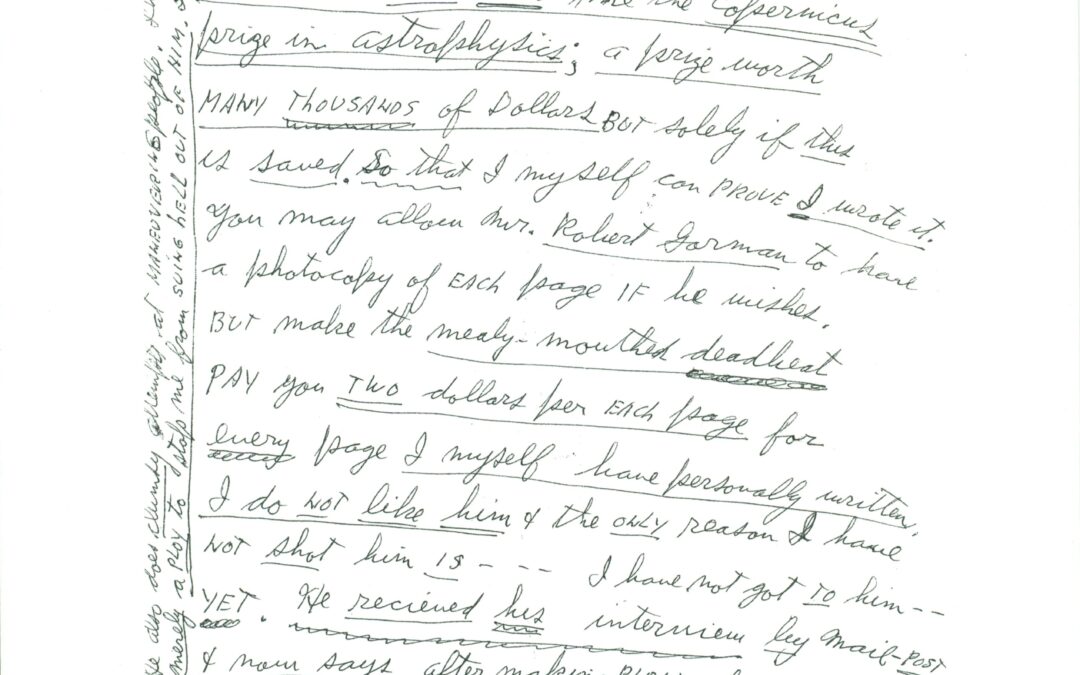 the Copernicus
prize in astrophysics; a prize worth
MANY THOUSANDS of Dollars BUT solely if this
is saved. So that I myself can PROVE I wrote it.
You may allow Mr. Robert Gorman to have
a photocopy of EACH page IF he wishes.
BUT make the mealy-mouthed deadbeat
PAY you TWO dollars per EACH page for
every page I myself have personally written.
I do NOT like him & the ONLY reason I have
NOT shot him IS - - - - I have not got TO him--
YET. He recieved his interview by Mail-POST
& now says after
He also does clumsy attempts at MANEUVERING people.
merely a PLOY to stop me from SUING HELL OUT OF HIM.